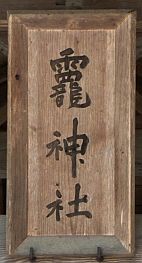 龗神社